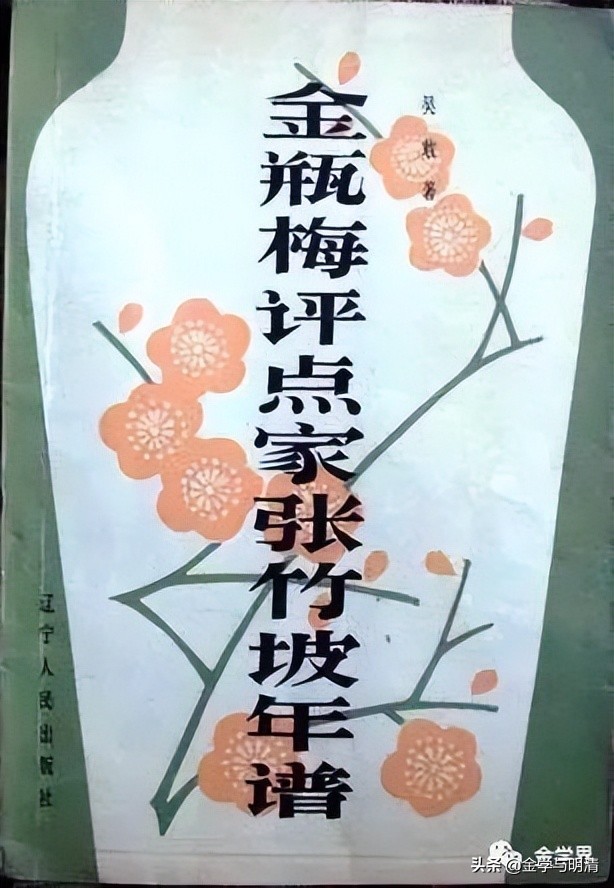 吴敢著
金瓶梅评点家张竹坡年谱
辽宁人民出版社
金学界
头条 @金学与明清